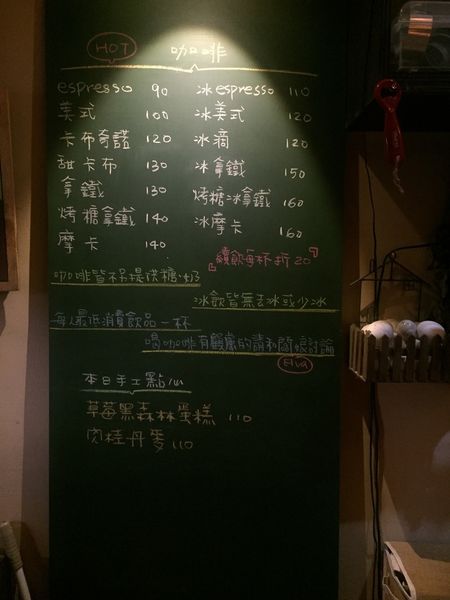 HOT 咖啡
espresso 90 冰espresso 110
美式 100 冰美式 120
卡布奇諾 120 冰滴 120
甜卡布 130 冰拿鐵 150
拿鐵 130 烤糖冰拿鐵 160
烤糖拿鐵 140 冰摩卡 160
摩卡 140
『續飲每杯折20』
咖啡皆不提供糖.奶
冰飲皆無去冰或少冰
每人最低消費飲品一杯
喝咖啡有
的請和闆娘討論
Elva
本日手工點心
草莓黑森林蛋糕 110
肉桂丹麥 110